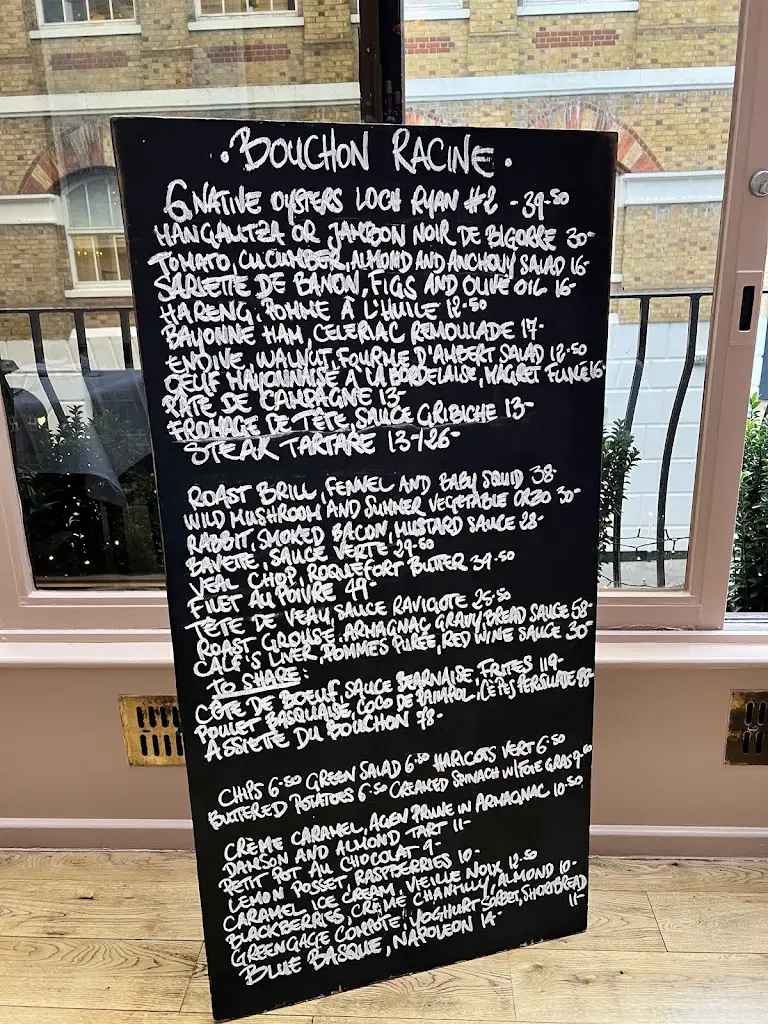 ·BOUCHON RACINE·
6 NATIVE OYSTERS LOCH RYAN #2 - 39-50
MANGALITZA OR JAMBON NOIR DE BIGORRE 30-
TOMATO, CUCUMBER, ALMOND AND ANCHOVY SALAD 16-
SARIETTE DE BANON, FIGS AND OLIVE OIL 16-
HARENG, POMME À L'HUILE 12-50
BAYONNE HAM, CELERIAC REMOULADE 17-
ENDIVE, WALNUT, FOURME D'AMBERT SALAD 12-50
OEUF MAYONNAISE À LA BORDELAISE, MAGRET FUMÉ 16-
PÂTE DE CAMPAGNE 13-
FROMAGE DE TÊTE, SAUCE GRIBICHE 13-
STEAK TARTARE 13-/26-
ROAST BRILL, FENNEL AND BABY SQUID 38-
WILD MUSHROOM AND SUMMER VEGETABLE ORZO 30-
RABBIT, SMOKED BACON, MUSTARD SAUCE 28-
BAVETE, SAUCE VERTE 29-50
VEAL CHOP, ROQUEFORT BUTTER 39-50
FILET AU POIVRE 49-
TÊTE DE VEAU, SAUCE RAVIGOTE 25-50
ROAST GROUSE, ARMAGNAC GRAVY, BREAD SAUCE 58-
CALF'S LIVER, POMMES PURÉE, RED WINE SAUCE 30-
TO SHARE:
CÔTE DE BOEUF, SAUCE BEARNAISE, FRITES 119-
POULET BASQUAISE, COCO DE PAIMPOL, CÈPES PERSILLADE
ASSIETE DU BOUCHON 78-
CHIPS 6-50 GREEN SALAD 6-50 HARICOTS VERT 6-50
BUTTERED POTATOES 6-50 CREAMED SPINACH W/FOIE GRAS 9-50
CRÈME CARAMEL, AGEN PRUNE IN ARMAGNAC 10-50
DAMSON AND ALMOND TART 11-
PETIT POT AU CHOCOLAT 9-
LEMON POSSET, RASPBERRIES 10-
CARAMEL ICE CREAM, VIEILLE NOIX 12-50
BLACKBERRIES, CRÈME CHANTILLY, ALMOND 10-
GREENGAGE COMPOTE, YOGHURT SORBET, SHORTBREAD 11-
BLUE BASQUE, NAPOLEON 14-